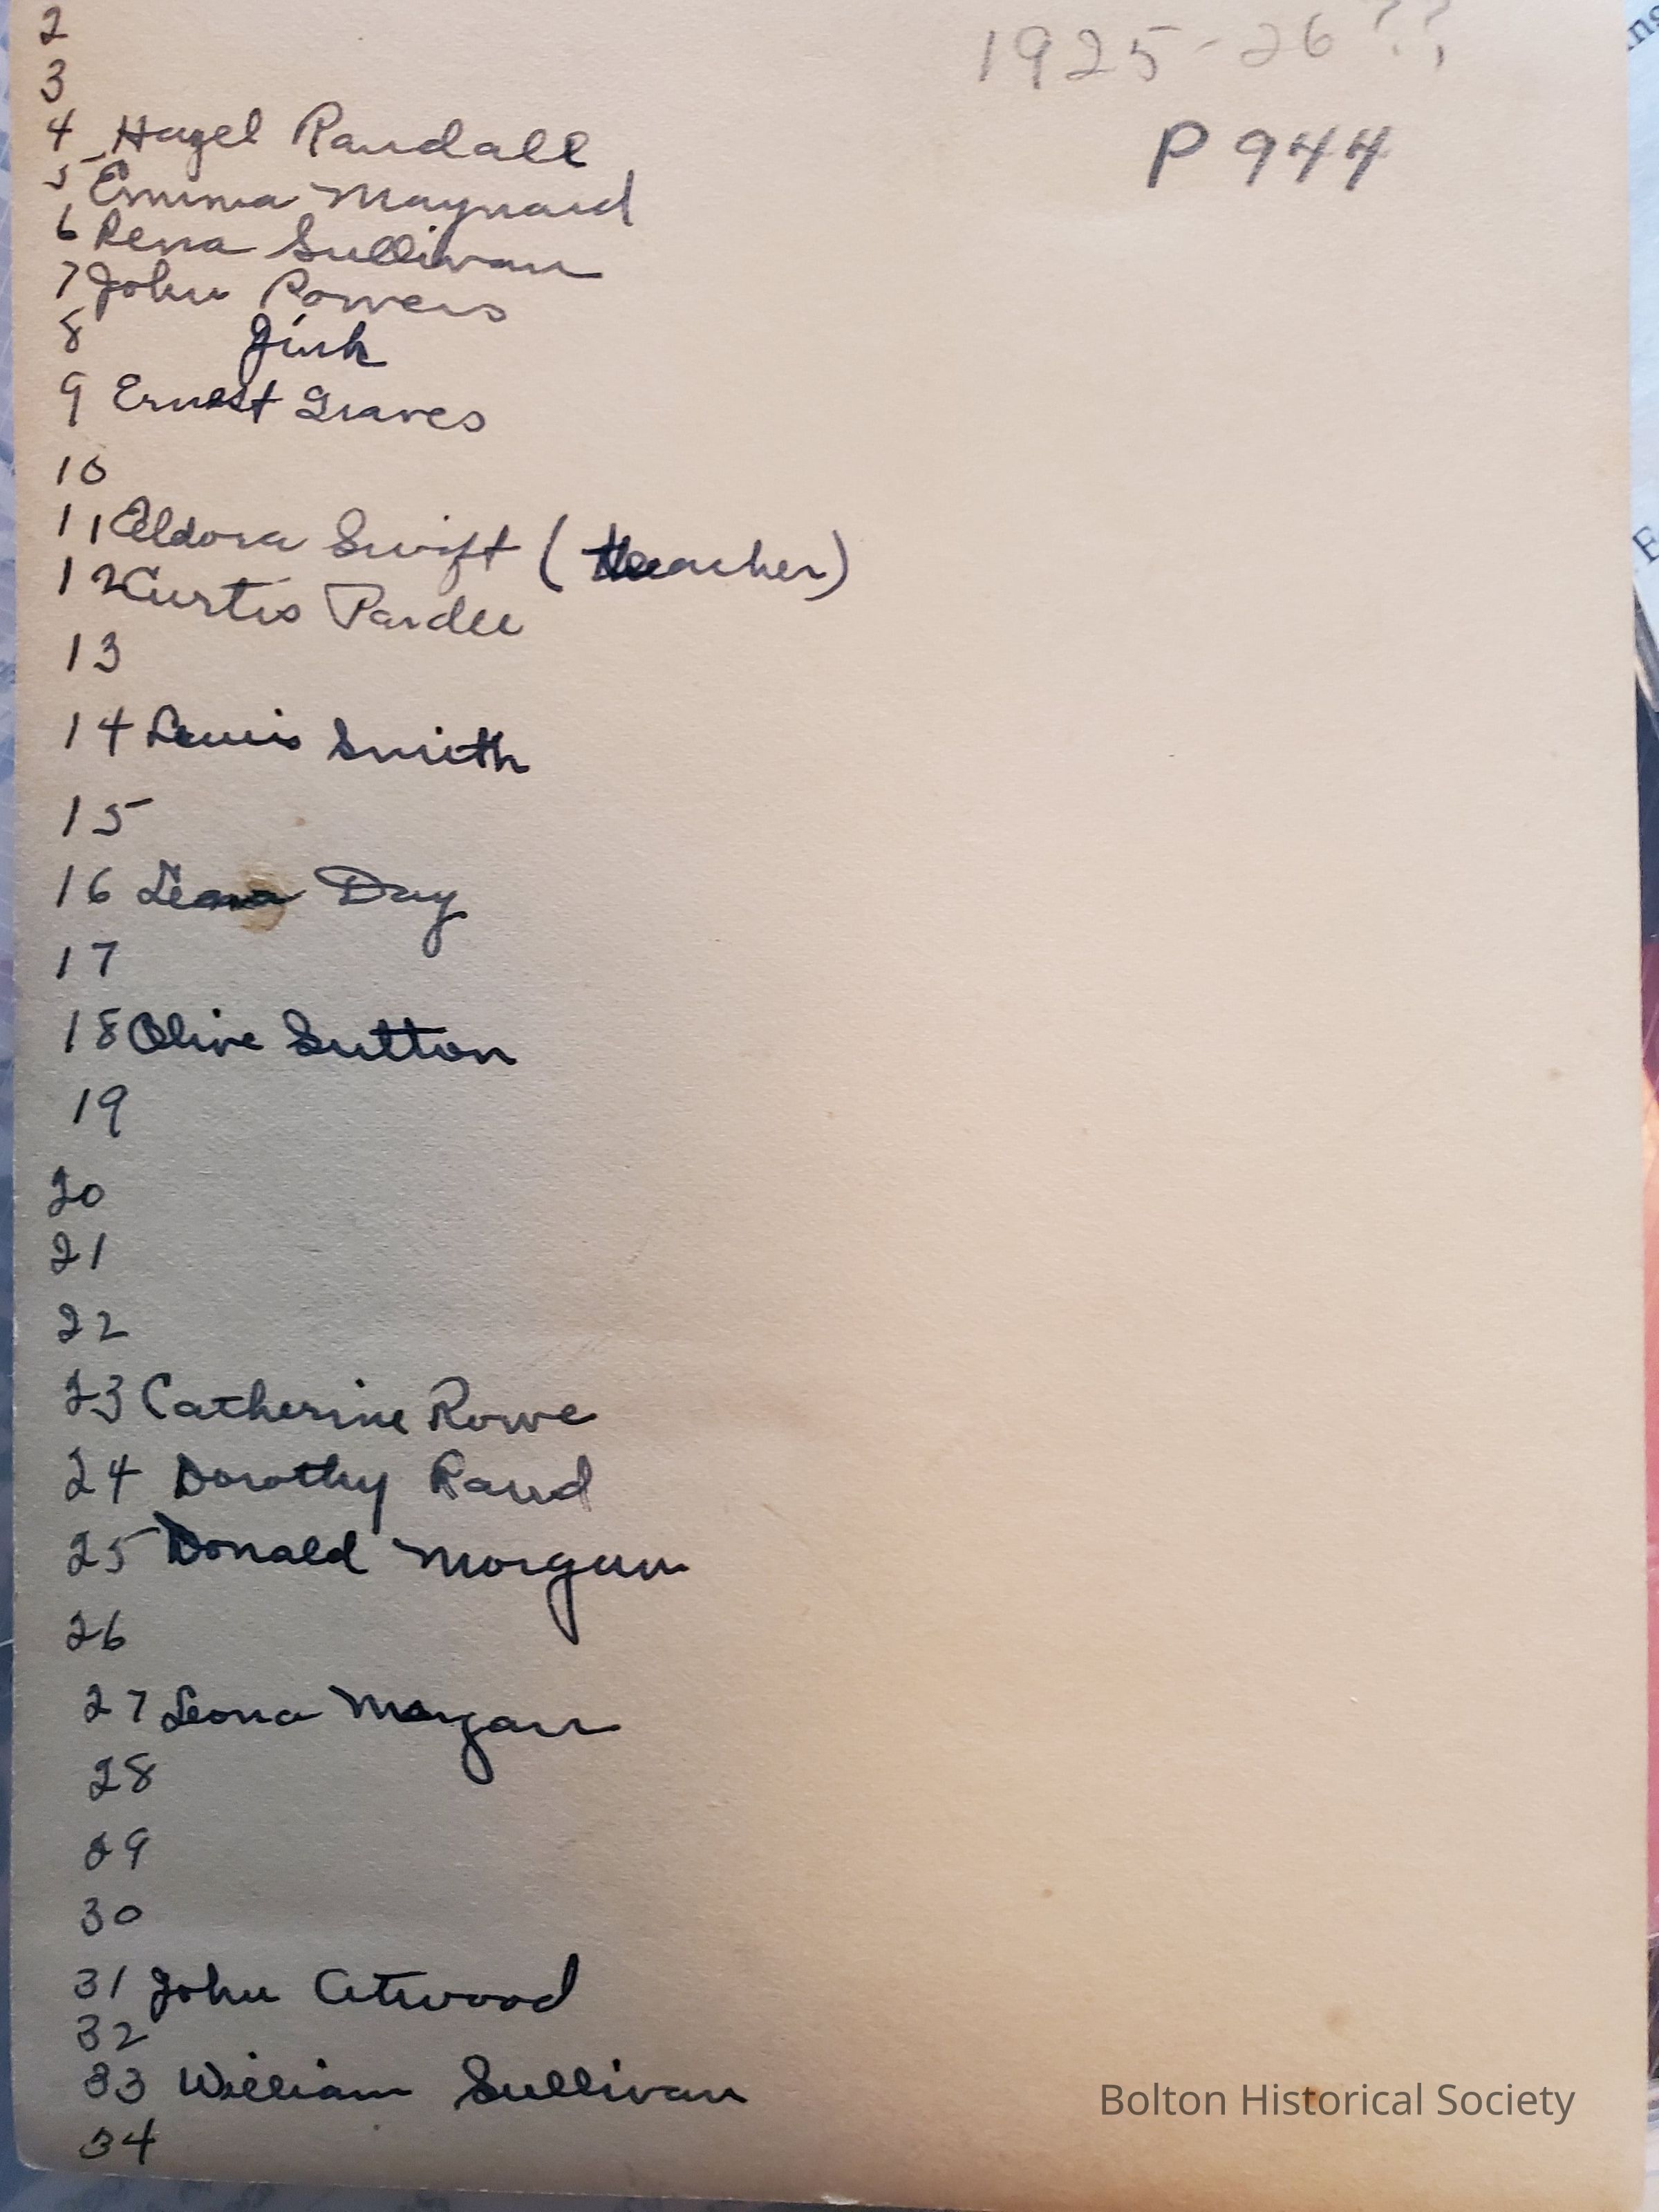 2
1925-26??
3
4 Hazel Randall
P944
5 Emma Maynard
6 Rena Sullivan
7 John Powers
8
9 Ernest Graves
10
11 Eldora Swift (teacher)
12 Curtis Pardee
13
14 Lewis Smith
15
16 Leona Day
17
18 Olive Sutton
19
20
21
22
23 Catherine Rowe
24 Dorothy Rand
25 Donald Morgan
26
27 Leona Morgan
28
29
30
31 John Atwood
32
33 William Sullivan
34
Bolton Historical Society